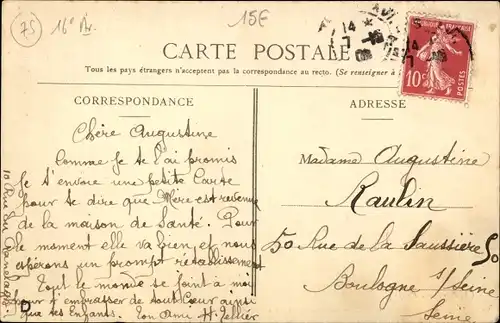 75
16e Ar.
15E
CARTE POSTALE
Tous les pays étrangers n'acceptent pas la correspondance au recto. (Se renseigner à
CORRESPONDANCE
ADRESSE
REPUBLIQUE FRANÇAISE
10c
POSTES
Chère Augustine
Comme je te l'ai promis
Je t'envoie une petite Carte
pour te dire que Mère est revenue
de la maison de Santé. Pour
le moment elle va bien et nous
espérons un prompt rétablissement
Tout le monde se joint à moi
pour t'embrasser de tout Coeur ainsi
que tes Enfants. Ton Ami H. Tellier
10 Rue du Ranelagh
Madame Augustine
Raulin
50 Rue de la Saussière 50
Boulogne s/Seine
Seine